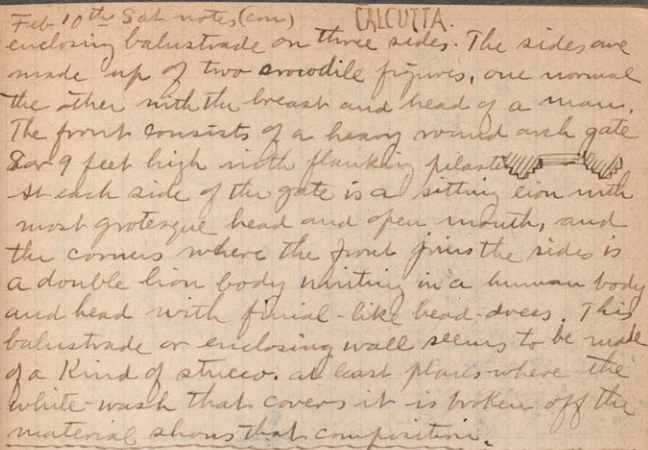 Feb 10th Sat notes (con) CALCUTTA.
enclosing balustrade on three sides. The sides are
made up of two crocodile figures, one normal
the other with the breast and head of a man.
The front consists of a heavy round arch gate
8 or 9 feet high with flanking pilasters
At each side of the gate is a sitting lion with
most grotesque head and open mouth, and
the corners where the front joins the sides is
a double lion body uniting in a human body
and head with finial-like head-dress. This
balustrade or enclosing wall seems to be made
of a kind of stucco. at least places where the
white-wash that covers it is broken off the
material shows that composition.